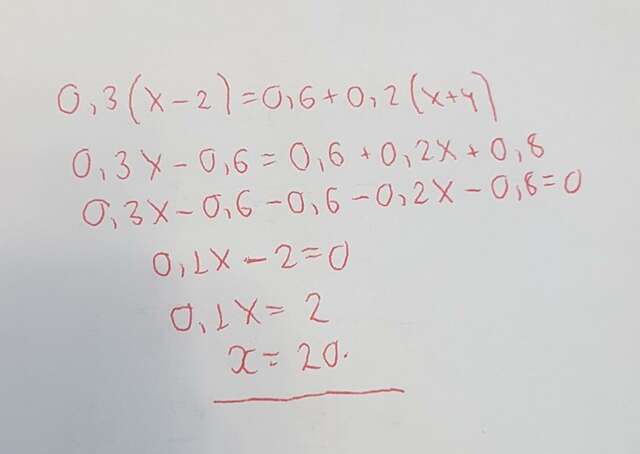 0,3(x-2)=0,6+0,2(x+4)
0,3x-0,6=0,6+0,2x+0,8
0,3x-0,6-0,6-0,2x-0,8=0
0,1x-2=0
0,1x=2
x=20.